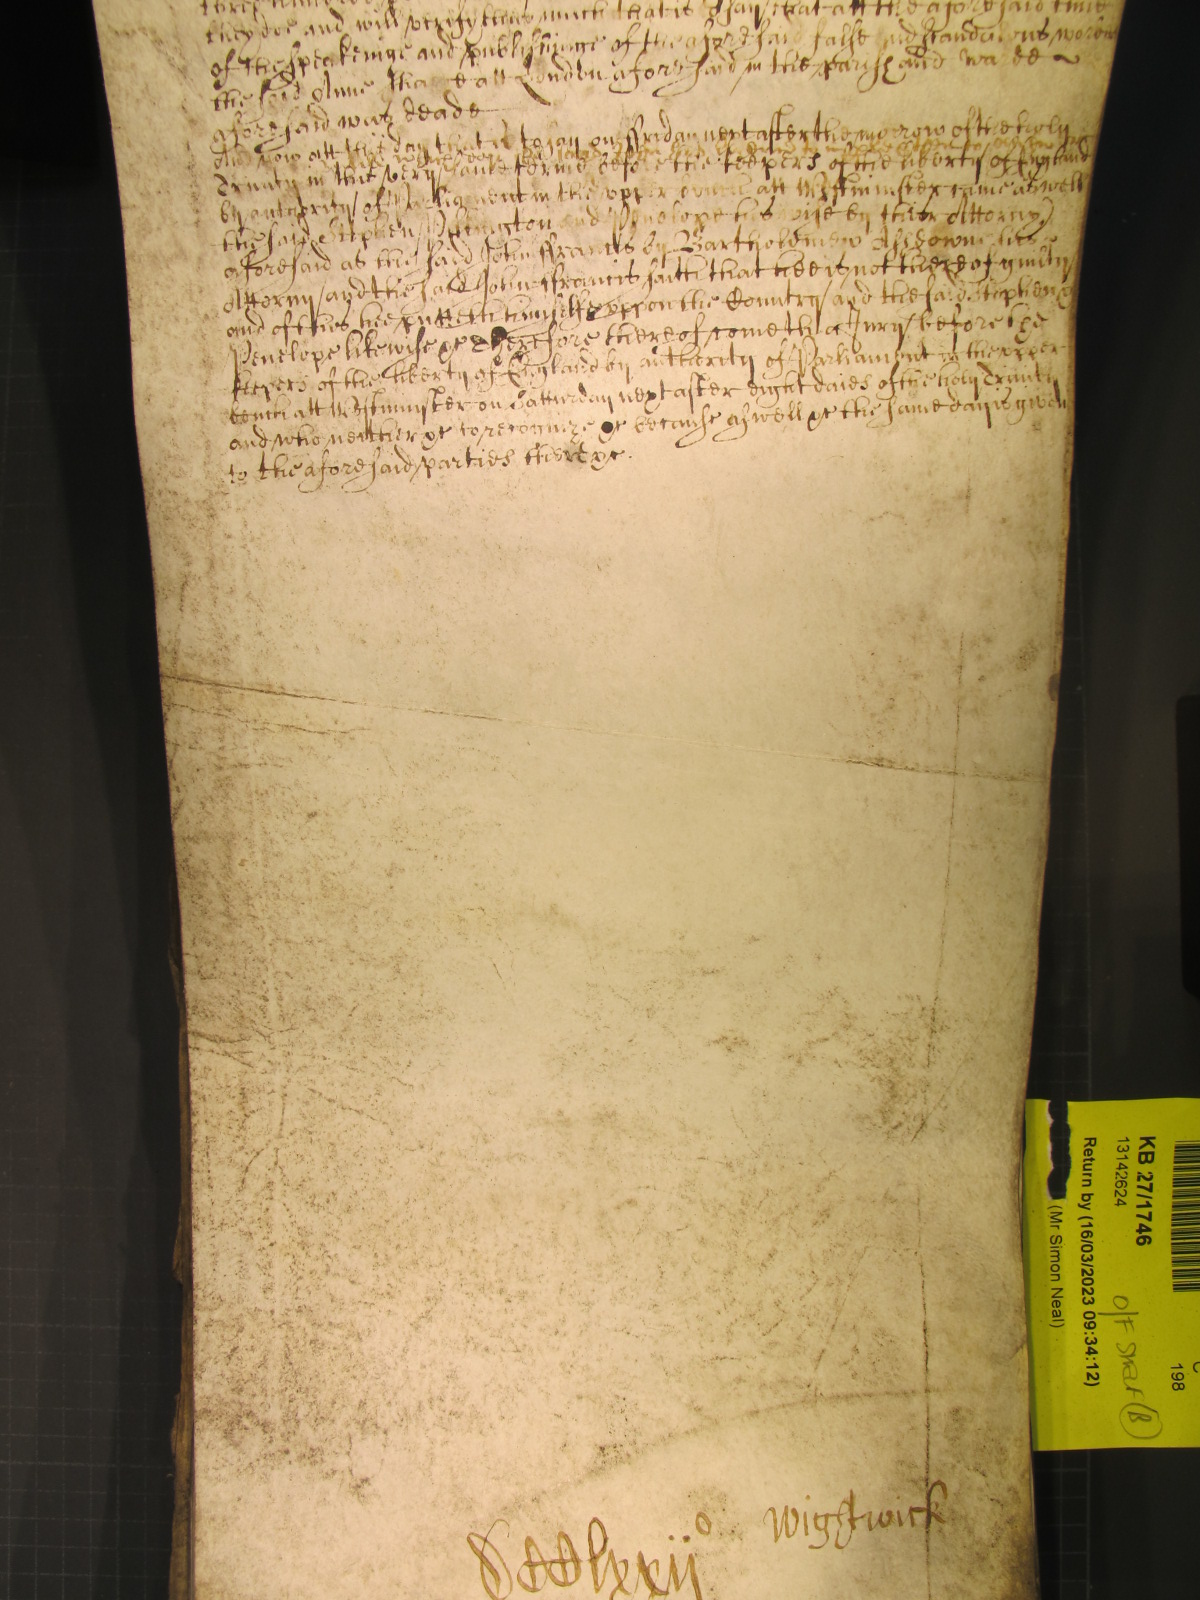 they doe and will verify thus much that is to say that att the aforesaid time
of the speakeinge and publishinge of the aforesaid false and scandalous words
the said Anne that is att London aforesaid in the parish and warde
aforesaid was deade
And now att this day that is to say on ffriday next after the morrow of the holy
Trinity in this very same terme before the keepers of the liberty of England
by authority of Parliament in the upper bench att Westminster came aswell
the said Stephen and Penelope his wife by their Attorny
aforesaid as the said John ffrancis by Bartholomew his
Attorny and the said John ffrancis saith that hee is not thereof guilty
and of this hee putteth himselfe uppon the Country and the said Stephen &
Penelope likewise &c Therefore thereof cometh a Jury before the
keepers of the liberty of England by authority of Parliament in the upper
bench att Westminster on Satturday next after eight daies of the holy Trinity
and who neither &c to recognize &c because aswell &c the same day is given
to the aforesaid parties there &c.
Wigstwick
KB 27/1746
13142624
Return by (16/03/2023 09:34:12)
(Mr Simon Neal)
198
O/F
B